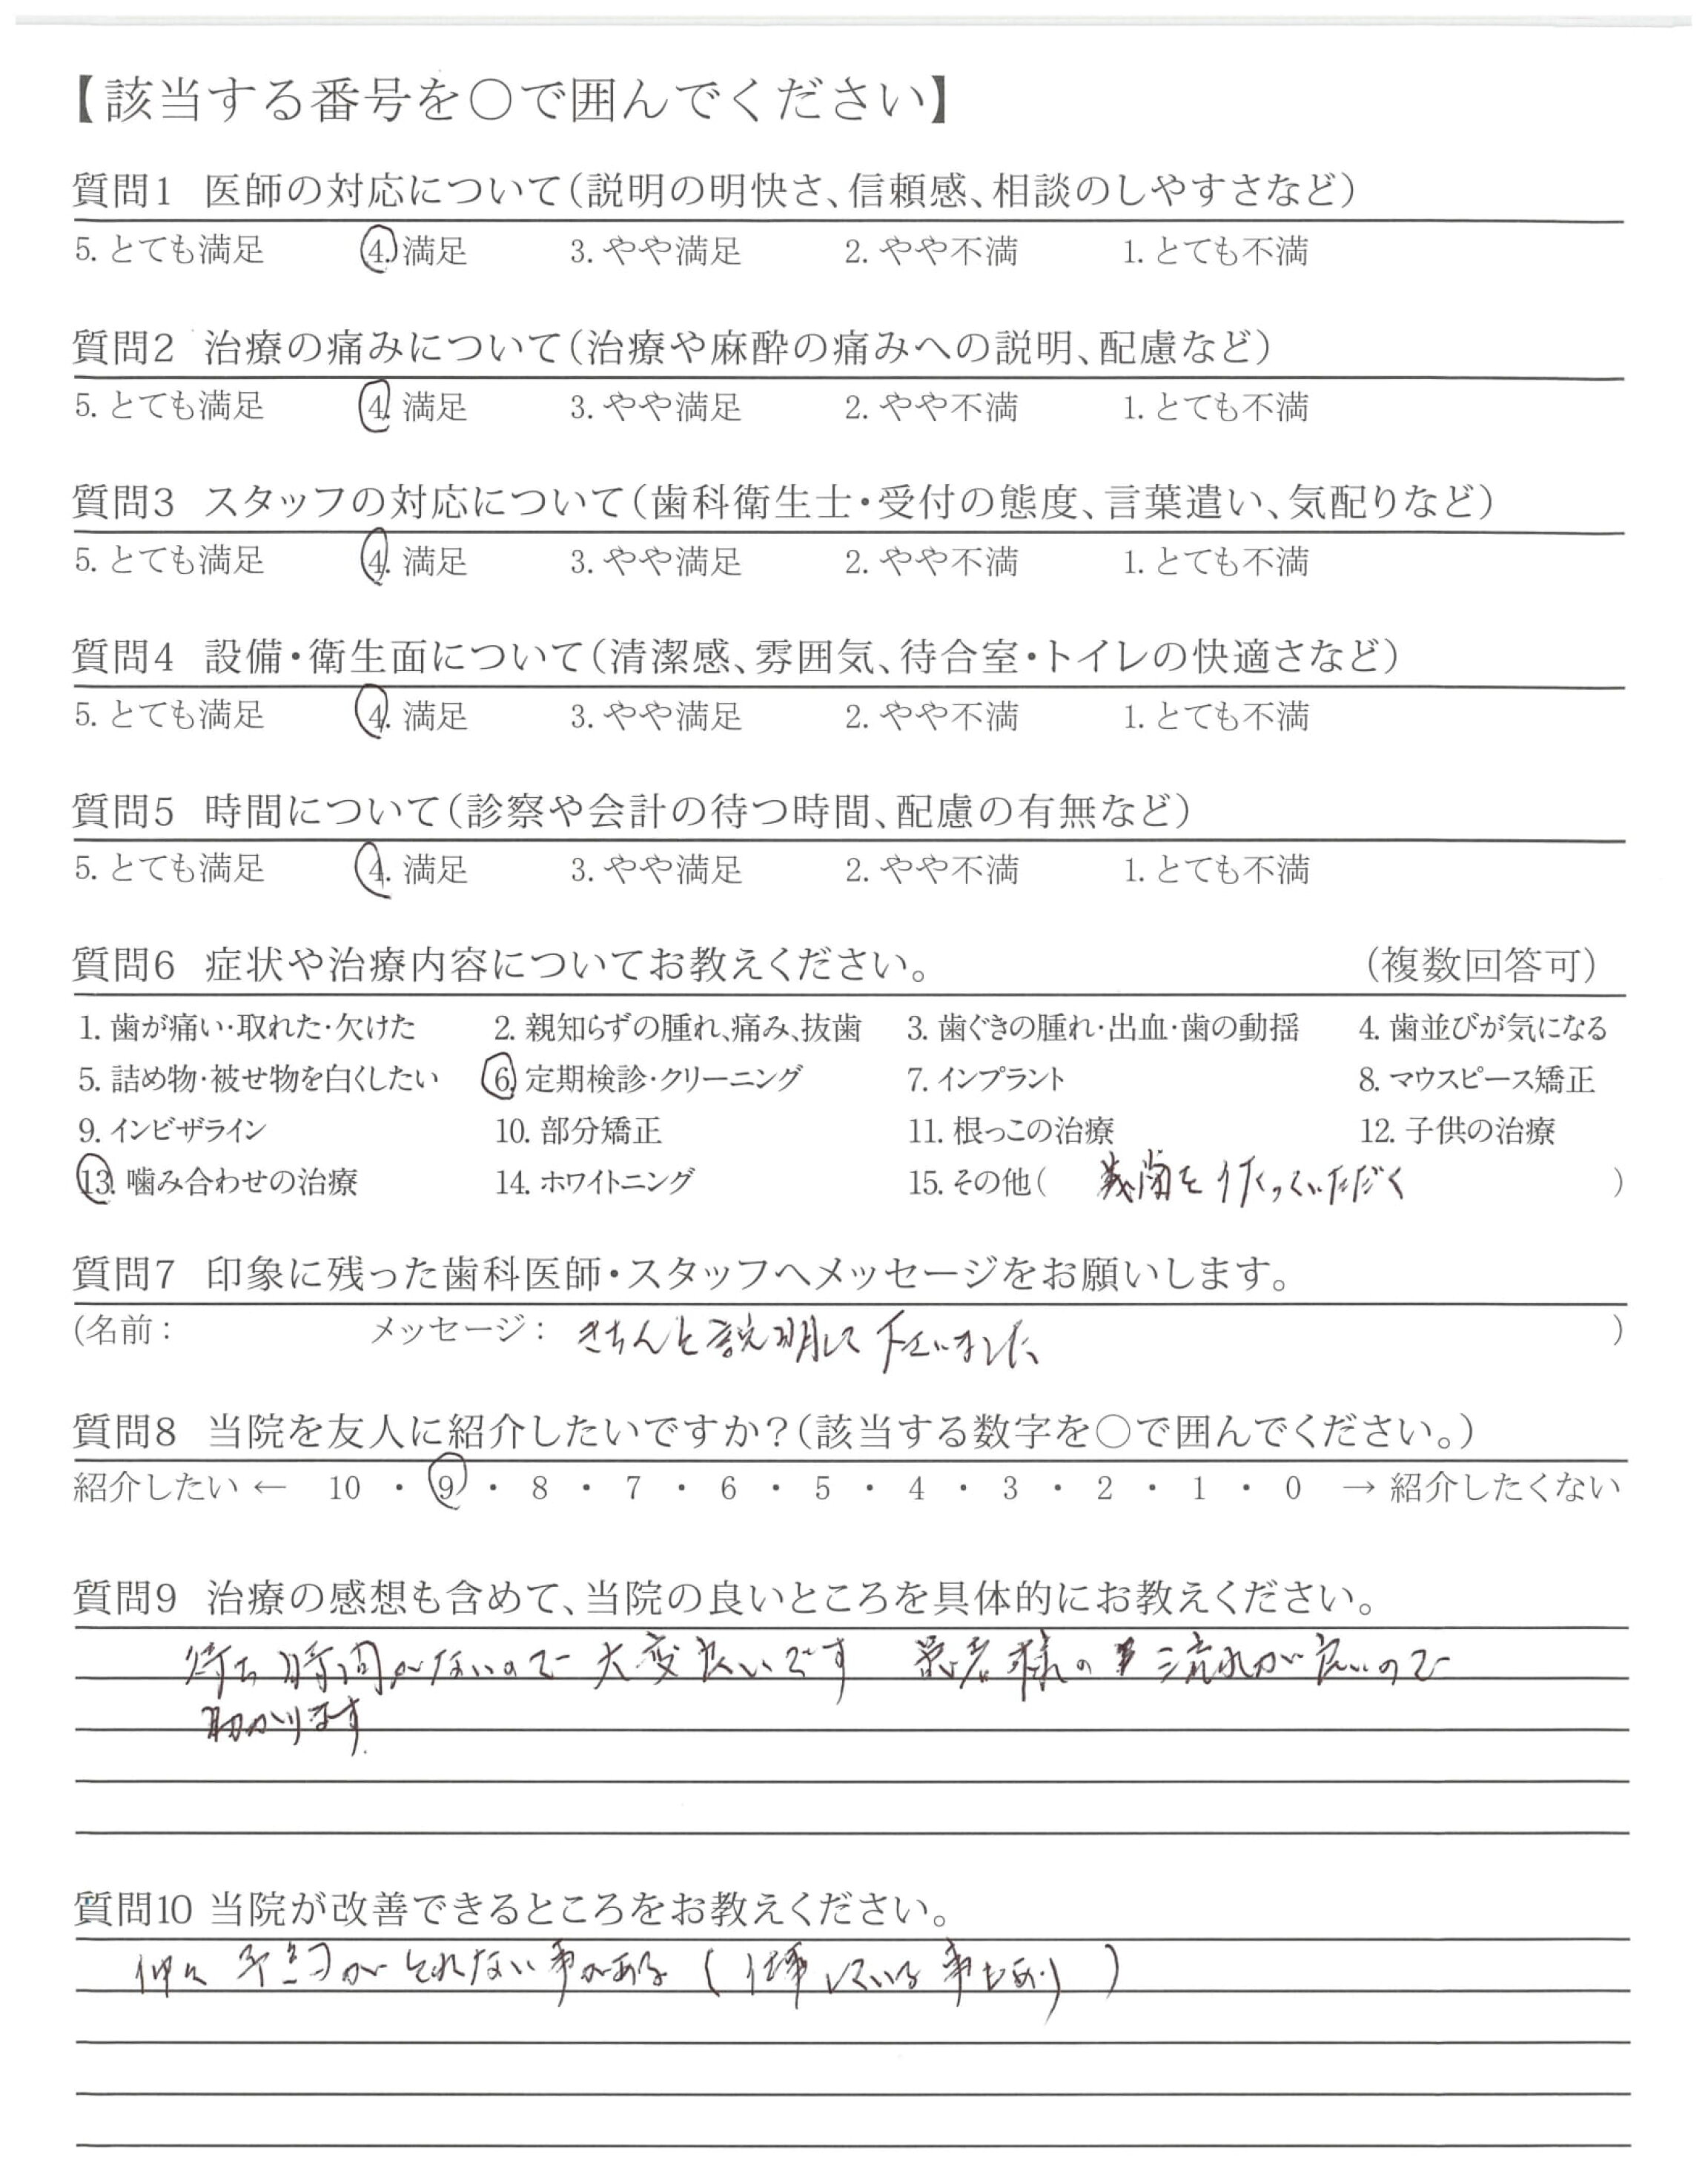 【該当する番号を○で囲んでください】
質問1 医師の対応について(説明の明快さ、信頼感、相談のしやすさなど)
5. とても満足 4. 満足 3. やや満足 2. やや不満 1. とても不満
質問2 治療の痛みについて(治療や麻酔の痛みへの説明、配慮など)
5. とても満足 4. 満足 3. やや満足 2. やや不満 1. とても不満
質問3 スタッフの対応について(歯科衛生士・受付の態度、言葉遣い、気配りなど)
5. とても満足 4. 満足 3. やや満足 2. やや不満 1. とても不満
質問4 設備・衛生面について(清潔感、雰囲気、待合室・トイレの快適さなど)
5. とても満足 4. 満足 3. やや満足 2. やや不満 1. とても不満
質問5 時間について(診察や会計の待つ時間、配慮の有無など)
5. とても満足 4. 満足 3. やや満足 2. やや不満 1. とても不満
質問6 症状や治療内容についてお教えください。 (複数回答可)
1. 歯が痛い・取れた・欠けた 2. 親知らずの腫れ、痛み、抜歯 3. 歯ぐきの腫れ・出血・歯の動揺 4. 歯並びが気になる
5. 詰め物・被せ物を白くしたい 6. 定期検診・クリーニング 7. インプラント 8. マウスピース矯正
9. インビザライン 10. 部分矯正 11. 根っこの治療 12. 子供の治療
13. 噛み合わせの治療 14. ホワイトニング 15. その他( 義歯を作っていただく )
質問7 印象に残った歯科医師・スタッフへメッセージをお願いします。
(名前: メッセージ: きちんと説明して下さいました )
質問8 当院を友人に紹介したいですか?(該当する数字を○で囲んでください。)
紹介したい ← 10 ・ 9 ・ 8 ・ 7 ・ 6 ・ 5 ・ 4 ・ 3 ・ 2 ・ 1 ・ 0 → 紹介したくない
質問9 治療の感想も含めて、当院の良いところを具体的にお教えください。
待ち時間がないので大変良いです 患者様の流れが良いので
助かります.
質問10 当院が改善できるところをお教えください。
仲々予約がとれない事がある (仕事している事もあり)